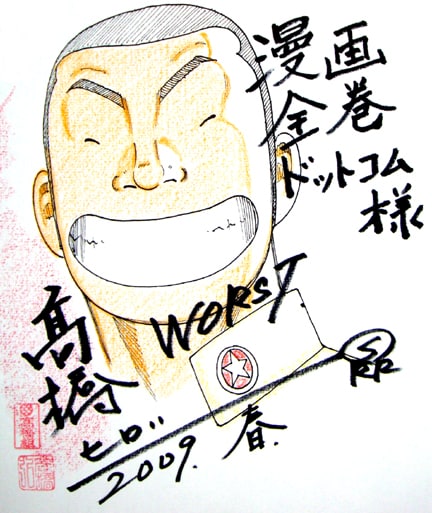 漫画
全巻
ドットコム
様
WORST
髙橋
ヒロシ
2009. 春.